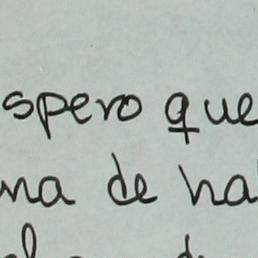 spero que
na de ha